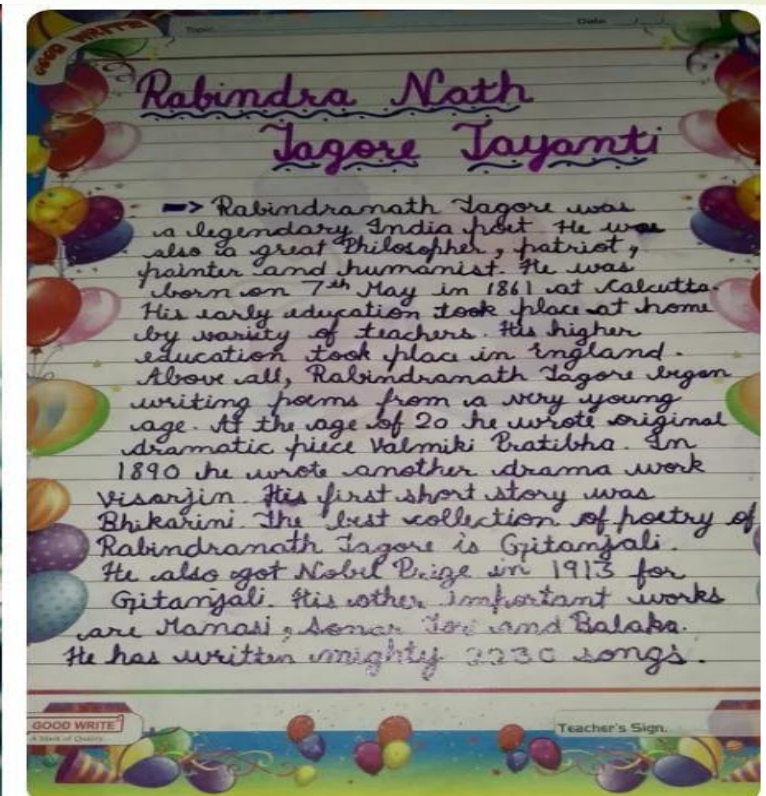 GOOD WRITE
Topic
Date
Rabindra Nath
Tagore Jayanti
Rabindranath Tagore was
a legendary India poet He was
also a great Philosopher, patriot,
painter and humanist. He was
born on 7th May in 1861 at Calcutta.
His early education took place at home
by variety of teachers. His higher
education took place in England.
Above all, Rabindranath Tagore began
writing poems from a very young
age. At the age of 20 he wrote original
dramatic piece Valmiki Pratibha. In
1890 he wrote another drama work
Visarjin. His first short story was
Bhikarini. The best collection of poetry of
Rabindranath Tagore is Gitanjali.
He also got Nobel Prize in 1913 for
Gitanjali. His other important works
are Manasi, Sonar Tori and Balaka.
He has written mighty 2230 songs.
GOOD WRITE
A Mark of Quality
Teacher's Sign.